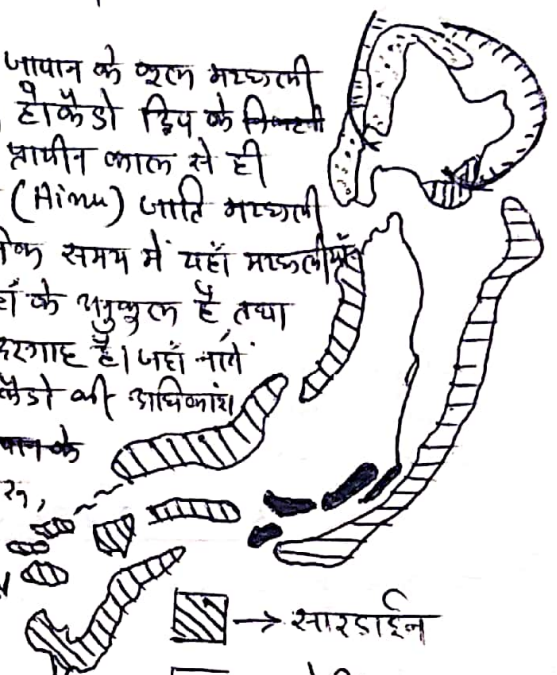 जापान के कुल मछली
होकैडो द्विप के
प्राचीन काल से ही
(Ainu) जाति मछली
समय में यहाँ मछलीयाँ
के अनुकूल है, तथा
है। जहाँ नावें
की अधिकांश
सारडाईन